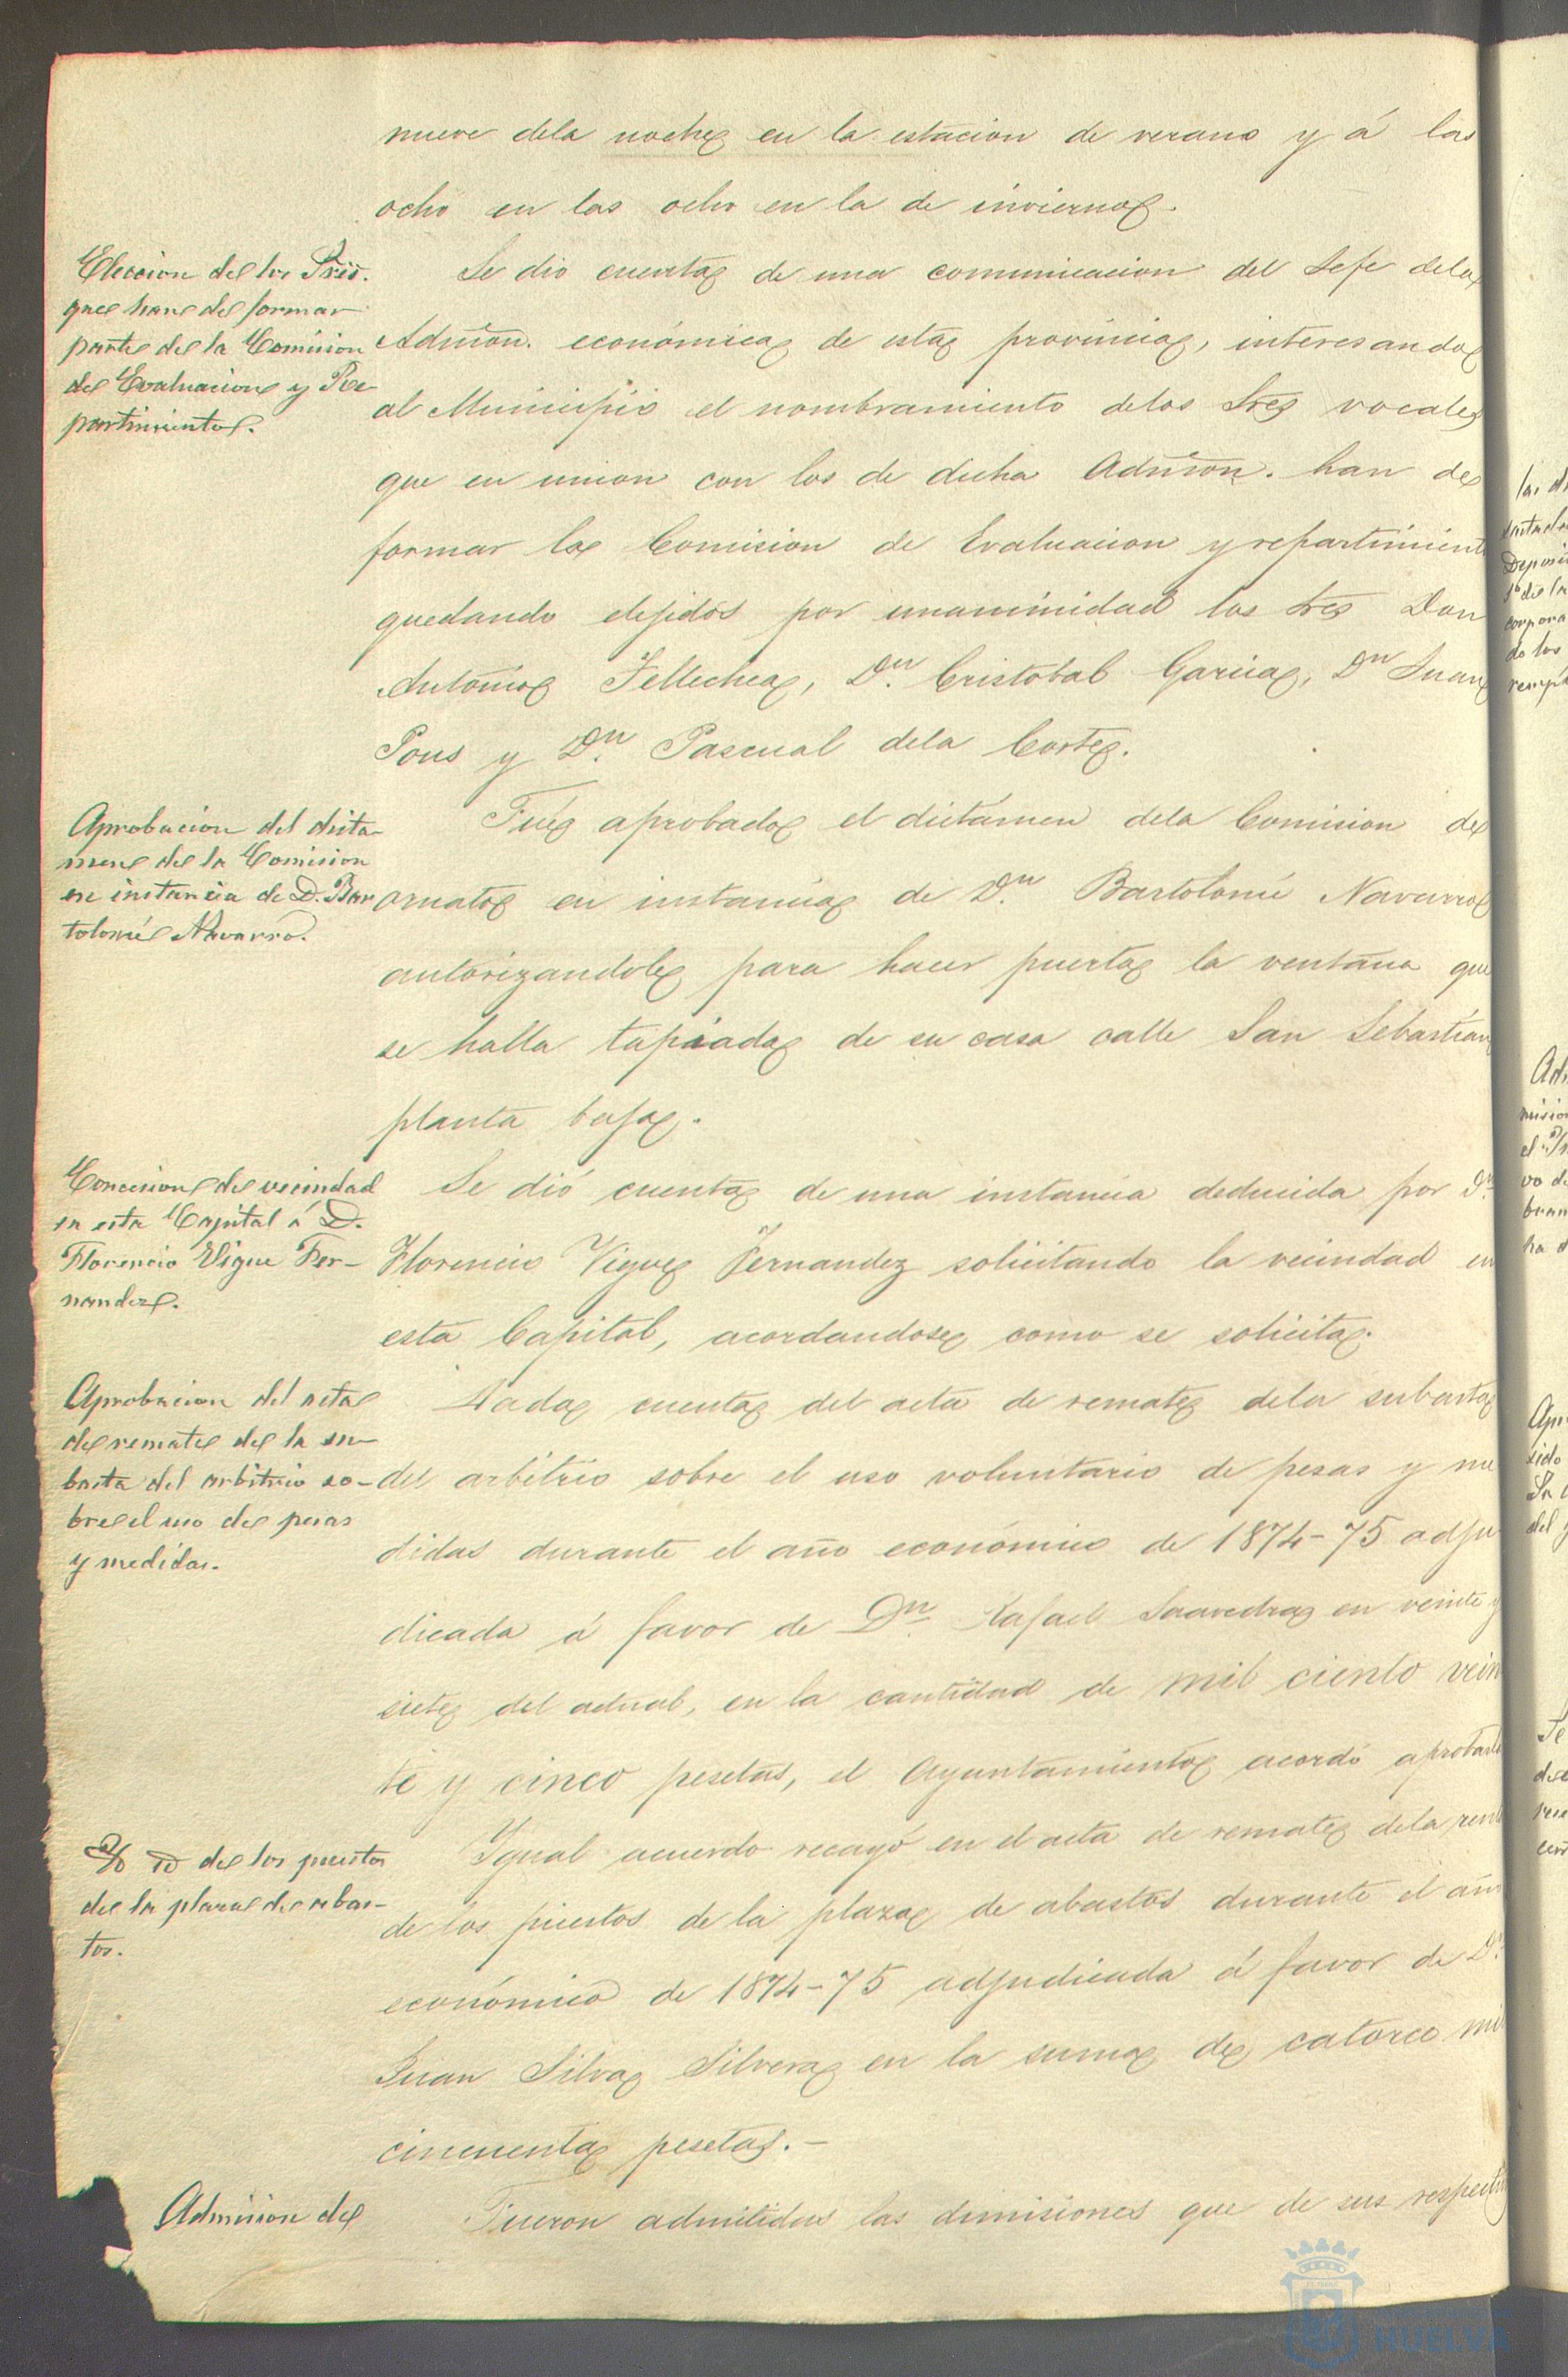 nueve dela noche en la estacion de verano y á las
ocho en las ocho en la de invierno.
Eleccion de los Sres.
que han de formar
parte de la Comision
de Evaluacion y Re-
partimiento.
Se dio cuenta de una comunicacion del Jefe dela
Admon. económica de esta provincia, interesando
al Municipio el nombramiento delos Sres vocales
que en union con los de dicha Admon. han de
formar la Comision de Evaluacion y repartimiento
quedando elejidos por unanimidad los Sres Don
Antonio Tellechea, Dn. Cristobal Garcia, Dn Juan
Pons y Dn. Pascual dela Corte.
Aprobacion del dicta-
men de la Comision
en instancia de D. Bar
tolomé Navarro.
Fué aprobado el dictámen dela Comision de
ornato en instancia de Dn. Bartolomé Navarro
autorizandole para hacer puerta la ventana que
se halla tapiada de su casa calle San Sebastian
planta baja.
Concesion de vecindad
en esta Capital á D.
Florencio Vigue Fer-
nandez.
Se dió cuenta de una instancia deducida por Dn
Florencio Vigue Fernandez solicitando la vecindad en
esta Capital, acordandose como se solicita.
Aprobacion del acta
de remate de la su-
basta del arbitrio so-
bre el uso de pesas
y medidas.
Dada cuenta del acta de remate dela subasta
del arbitrio sobre el uso voluntario de pesas y me
didas durante el año económico de 1874-75 adju
dicada á favor de Dn. Rafael Saavedra en veinte y
siete del actual, en la cantidad de mil ciento vein
te y cinco pesetas, el Ayuntamiento acordó aprobarlo
Yd Yd de los puestos
de la plaza de abas-
tos.
Igual acuerdo recayó en el acta de remate dela renta
de los puestos de la plaza de abastos durante el año
económico de 1874-75 adjudicada á favor de Dn.
Juan Silva Silvera en la suma de catorce mil
cincuenta pesetas.-
Admision de
Fueron admitidas las dimisiones que de sus respectiv
HUELVA